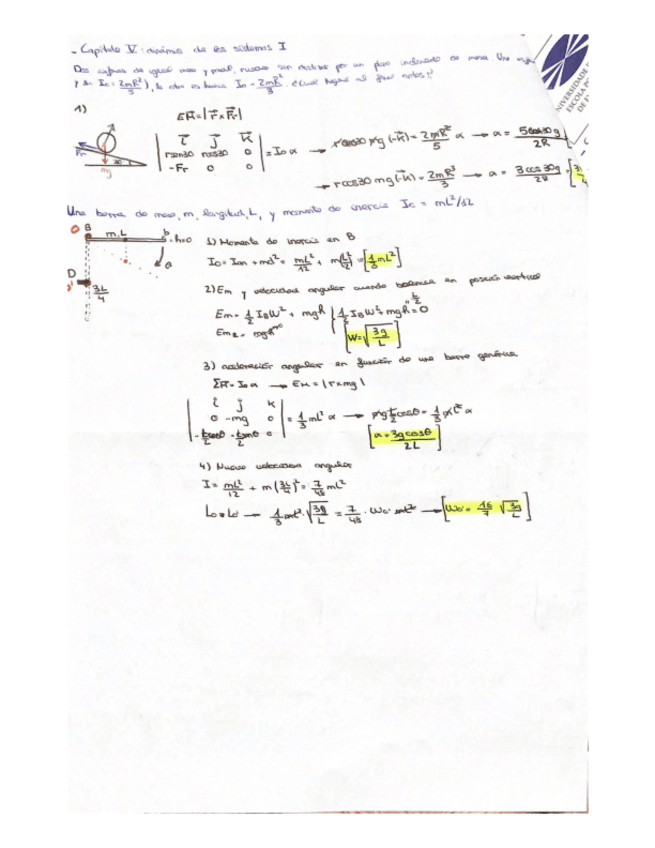 - Capítulo V: dinámica de los sistemas I
Dos esferas de igual masa y radio, ruedan sin deslizar por un plano inclinado de masa. Una
y su Ic = 2mR²/5), la otra es hueca In = 2mR²/3. ¿Cuál llegará al final antes?
UNIVERSIDADE
ESCOLA PO
DE F
1)
ΣM = |r⃗ x F⃗r|
Fr
30
mg
| i⃗ j⃗ k⃗ |
| rsen30 rcos30 0 | = Io α → rcos30 mg(-k⃗) = 2mR²/5 α → α = 5cos30g/2R
| -Fr 0 0 |
→ rcos30 mg(-k⃗) = 2mR²/3 → α = 3cos30g/2R
Una barra de masa, m, longitud, L, y momento de inercia Ic = mL²/12
O B m, L b h=0
a
D
3L/4
1) Momento de inercia en B
Io = Icm + md² = mL²/12 + m(L/2)² = [1/3 mL²]
2) Em y velocidad angular cuando barra en posición vertical
Em = 1/2 IB W² + mgh
Em2 = mgh
1/2 IB W² + mgh = 0
L/2
[W = √3g/L]
3) aceleración angular en función de una barra genérica
ΣM = Io α → ΣM = |r x mg|
| i j k |
| 0 -mg 0 | = 1/3 mL² α → mg L/2 cosθ = 1/3 mL² α
| -L/2 cosθ -L/2 senθ 0 |
[α = 3gcosθ/2L]
4) Nueva velocidad angular
I = mL²/12 + m(3L/4)² = 7/48 mL²
Lo = Lo' → 1/3 mL² · √3g/L = 7/48 · Wo' mL² → [Wo' = 16/7 √3g/L]